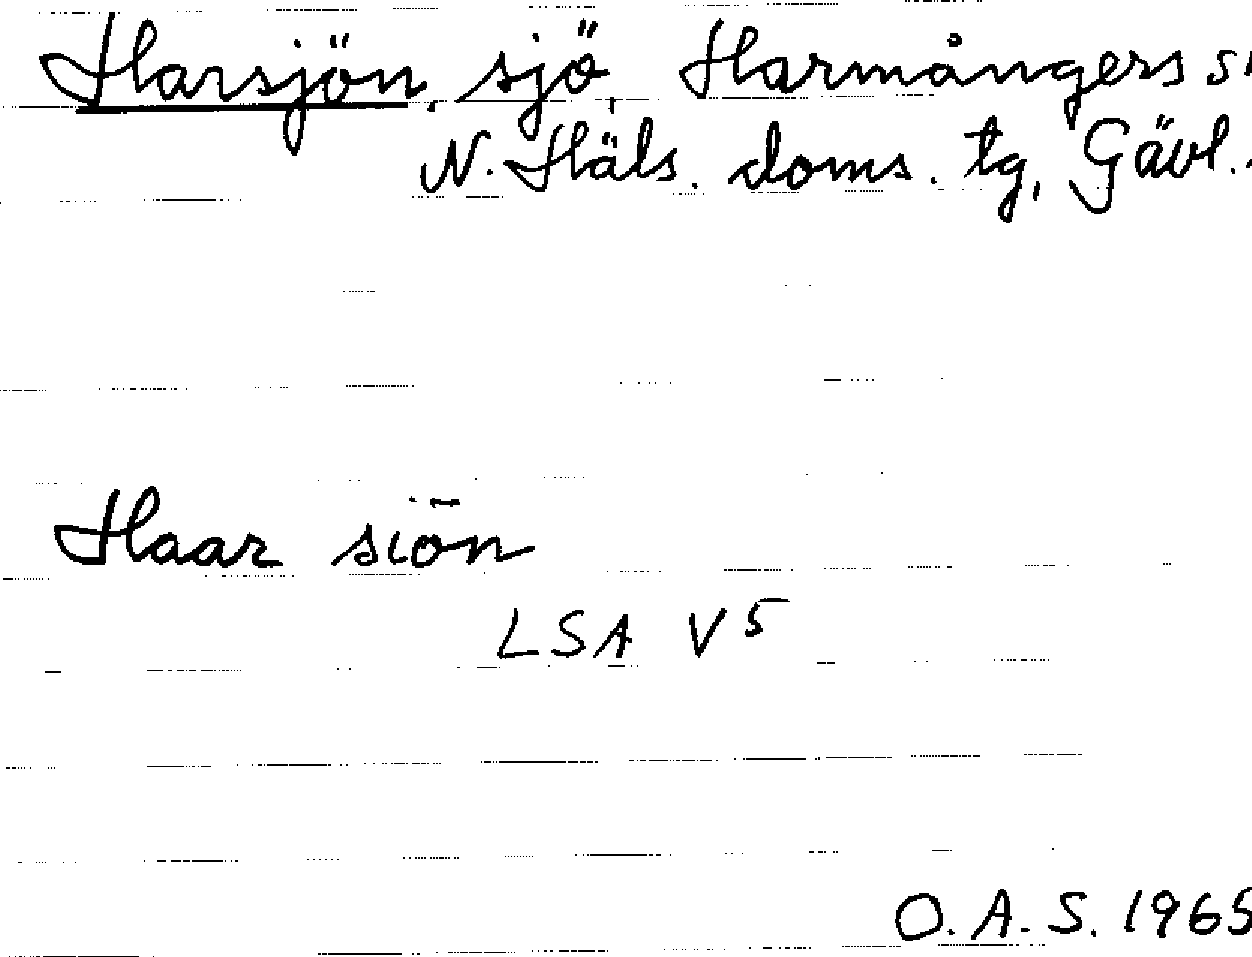 Harsjön, sjö, Harmångers s
N. Häls. doms. tg, Gävl.
Haar siön
LSA V5
O.A.S. 1965